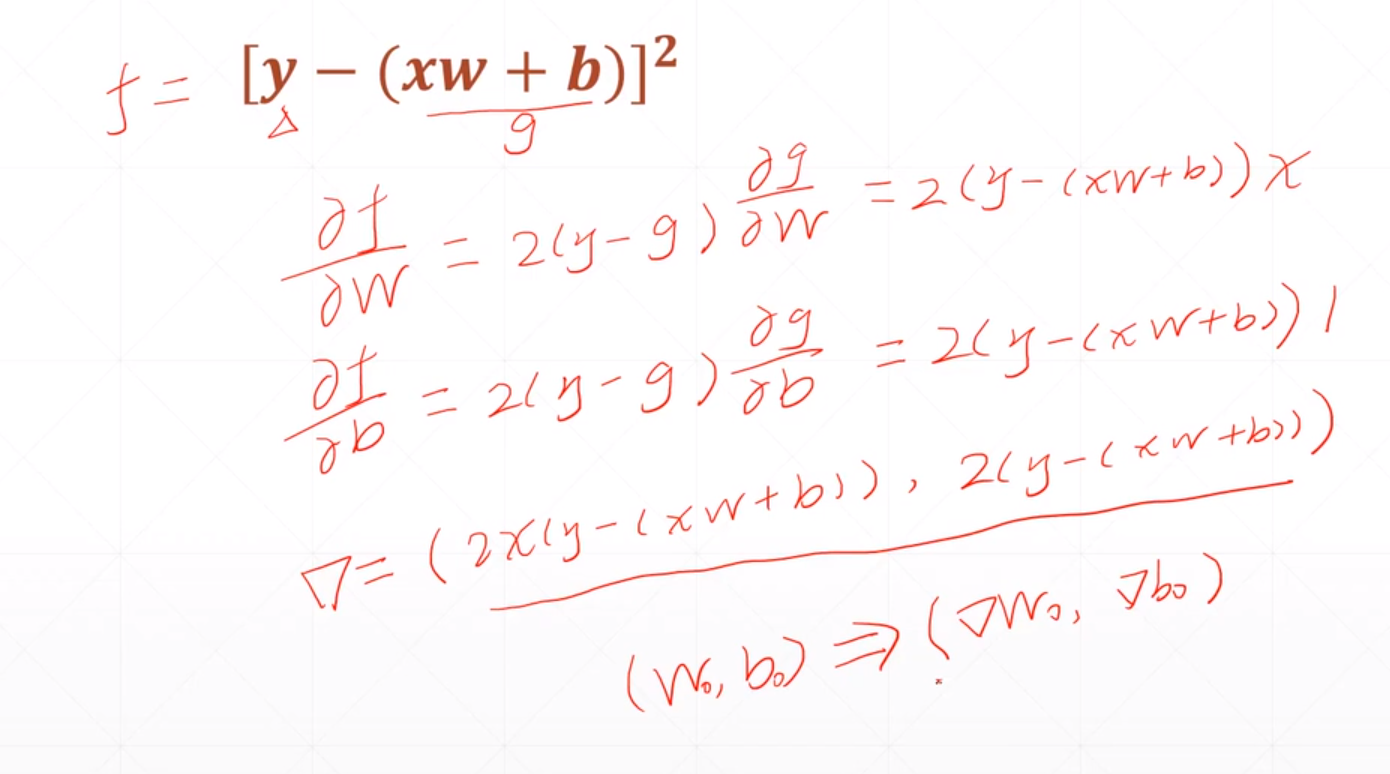 f = [y − (xw + b)]²
Δ g
∂f/∂w = 2(y-g) ∂g/∂w = 2(y-(xw+b))x
∂f/∂b = 2(y-g) ∂g/∂b = 2(y-(xw+b))1
∇= (2x(y-(xw+b)), 2(y-(xw+b)))
(w₀, b₀) ⇒ (∇w₀, ∇b₀)